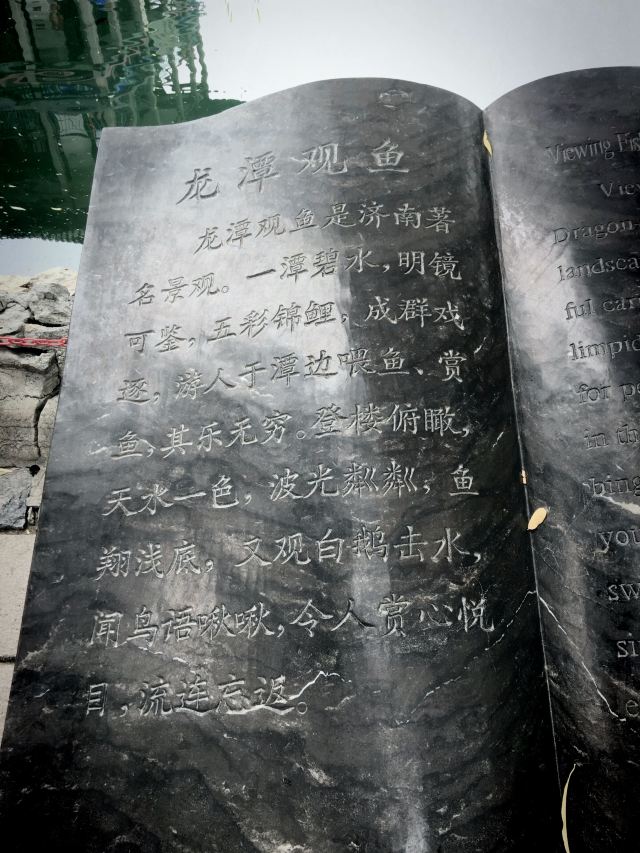 龙潭观鱼
龙潭观鱼是济南著
名景观。一潭碧水，明镜
可鉴，五彩锦鲤，成群戏
逐，游人于潭边喂鱼、赏
鱼，其乐无穷。登楼俯瞰，
天水一色，波光粼粼，鱼
翔浅底，又观白鹅击水，
闻鸟语啾啾，令人赏心悦
目，流连忘返。
Viewing Fis
Vie
Dragon
landsca
ful car
limpid
for pe
in th
you
sw
si